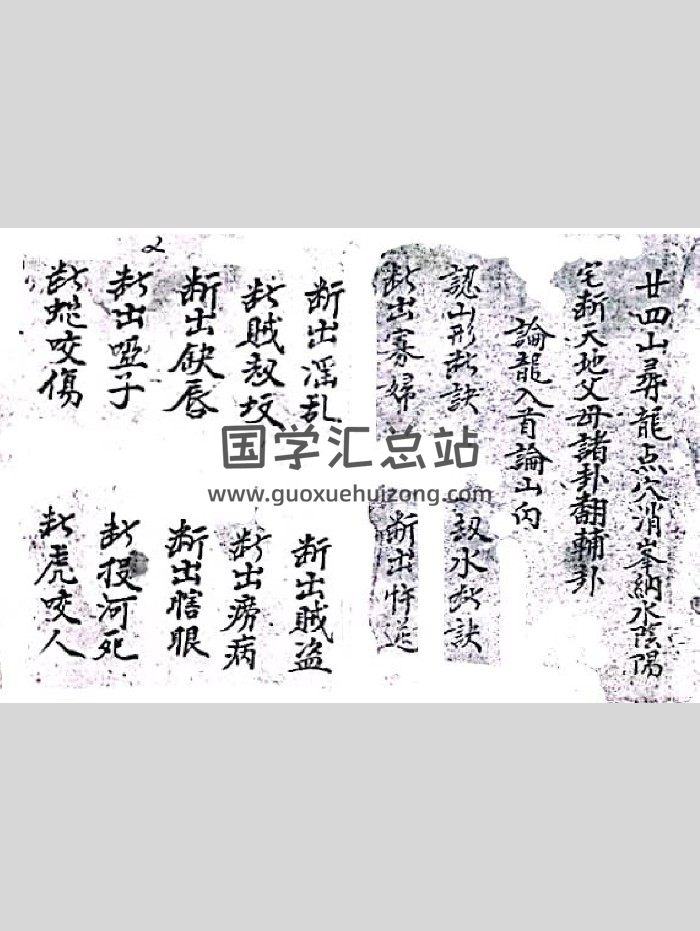 廿四山尋龍点穴消峯納水陰陽
宅斬天地父母諸卦翻輔卦
論龍入首論山向
認山形斷訣
認水斷訣
斷出寡婦
斷出忤逆
断出淫乱
断出賊盗
斷賊敖坟
斷出癆病
断出缺唇
断出瞎眼
斷出啞子
斷投河死
斷蛇咬傷
斷虎咬人
2
国学汇总站
www.guoxuehuizong.com